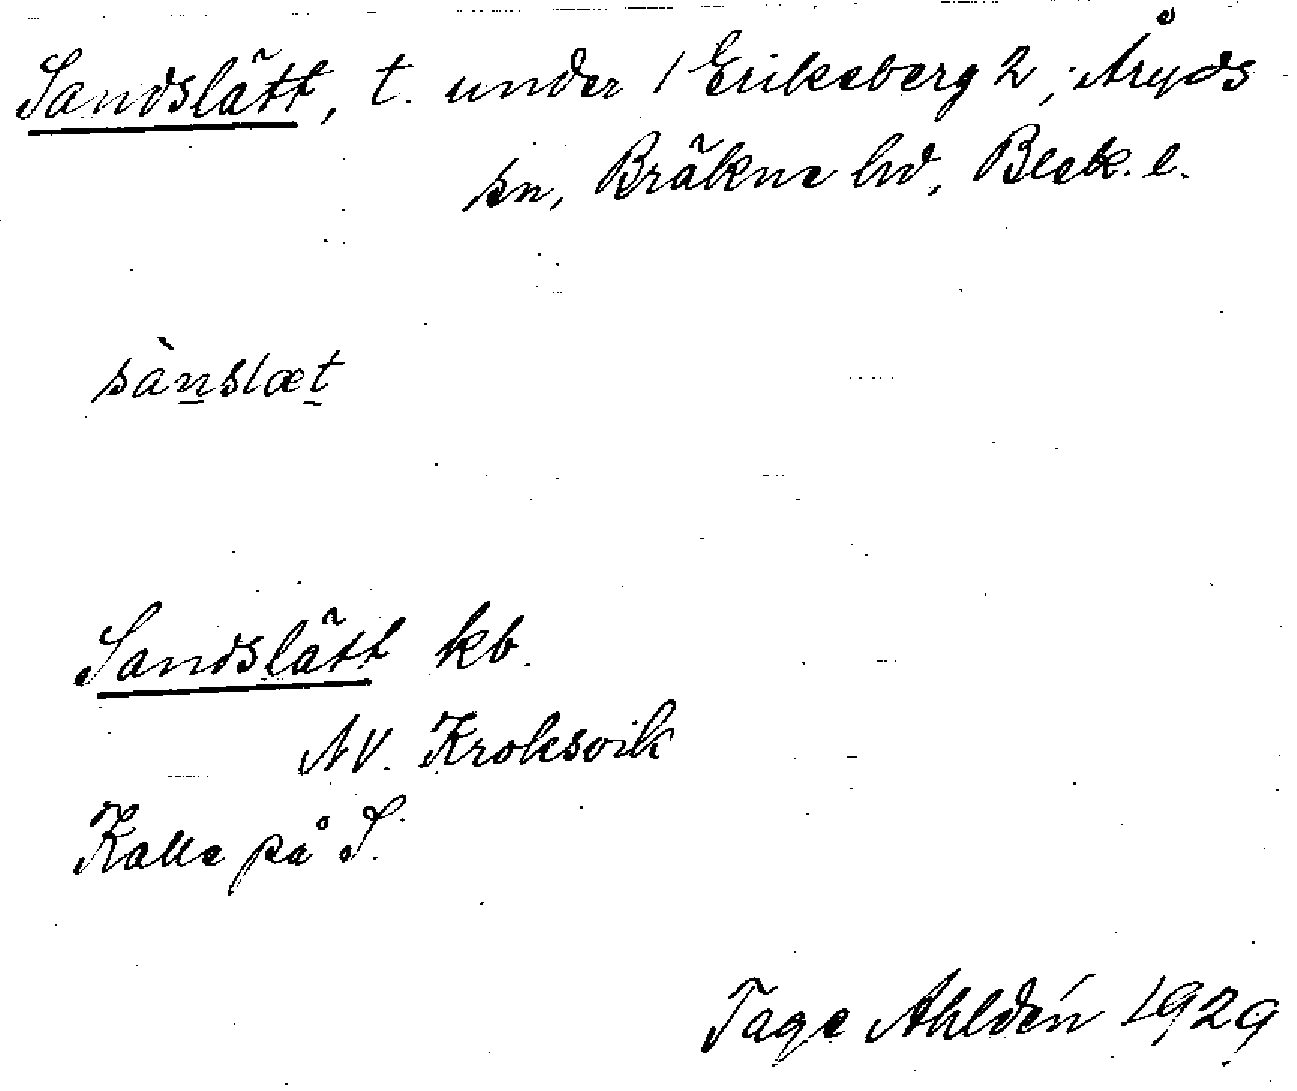 Sandslätt, t. under 1 Eriksberg 2, Åryds
sn, Bräkne hd, Blek. l.
sànslæt
Sandslätt kb.
NV. Kroksvik
Kalle på S.
Tage Ahldén 1929